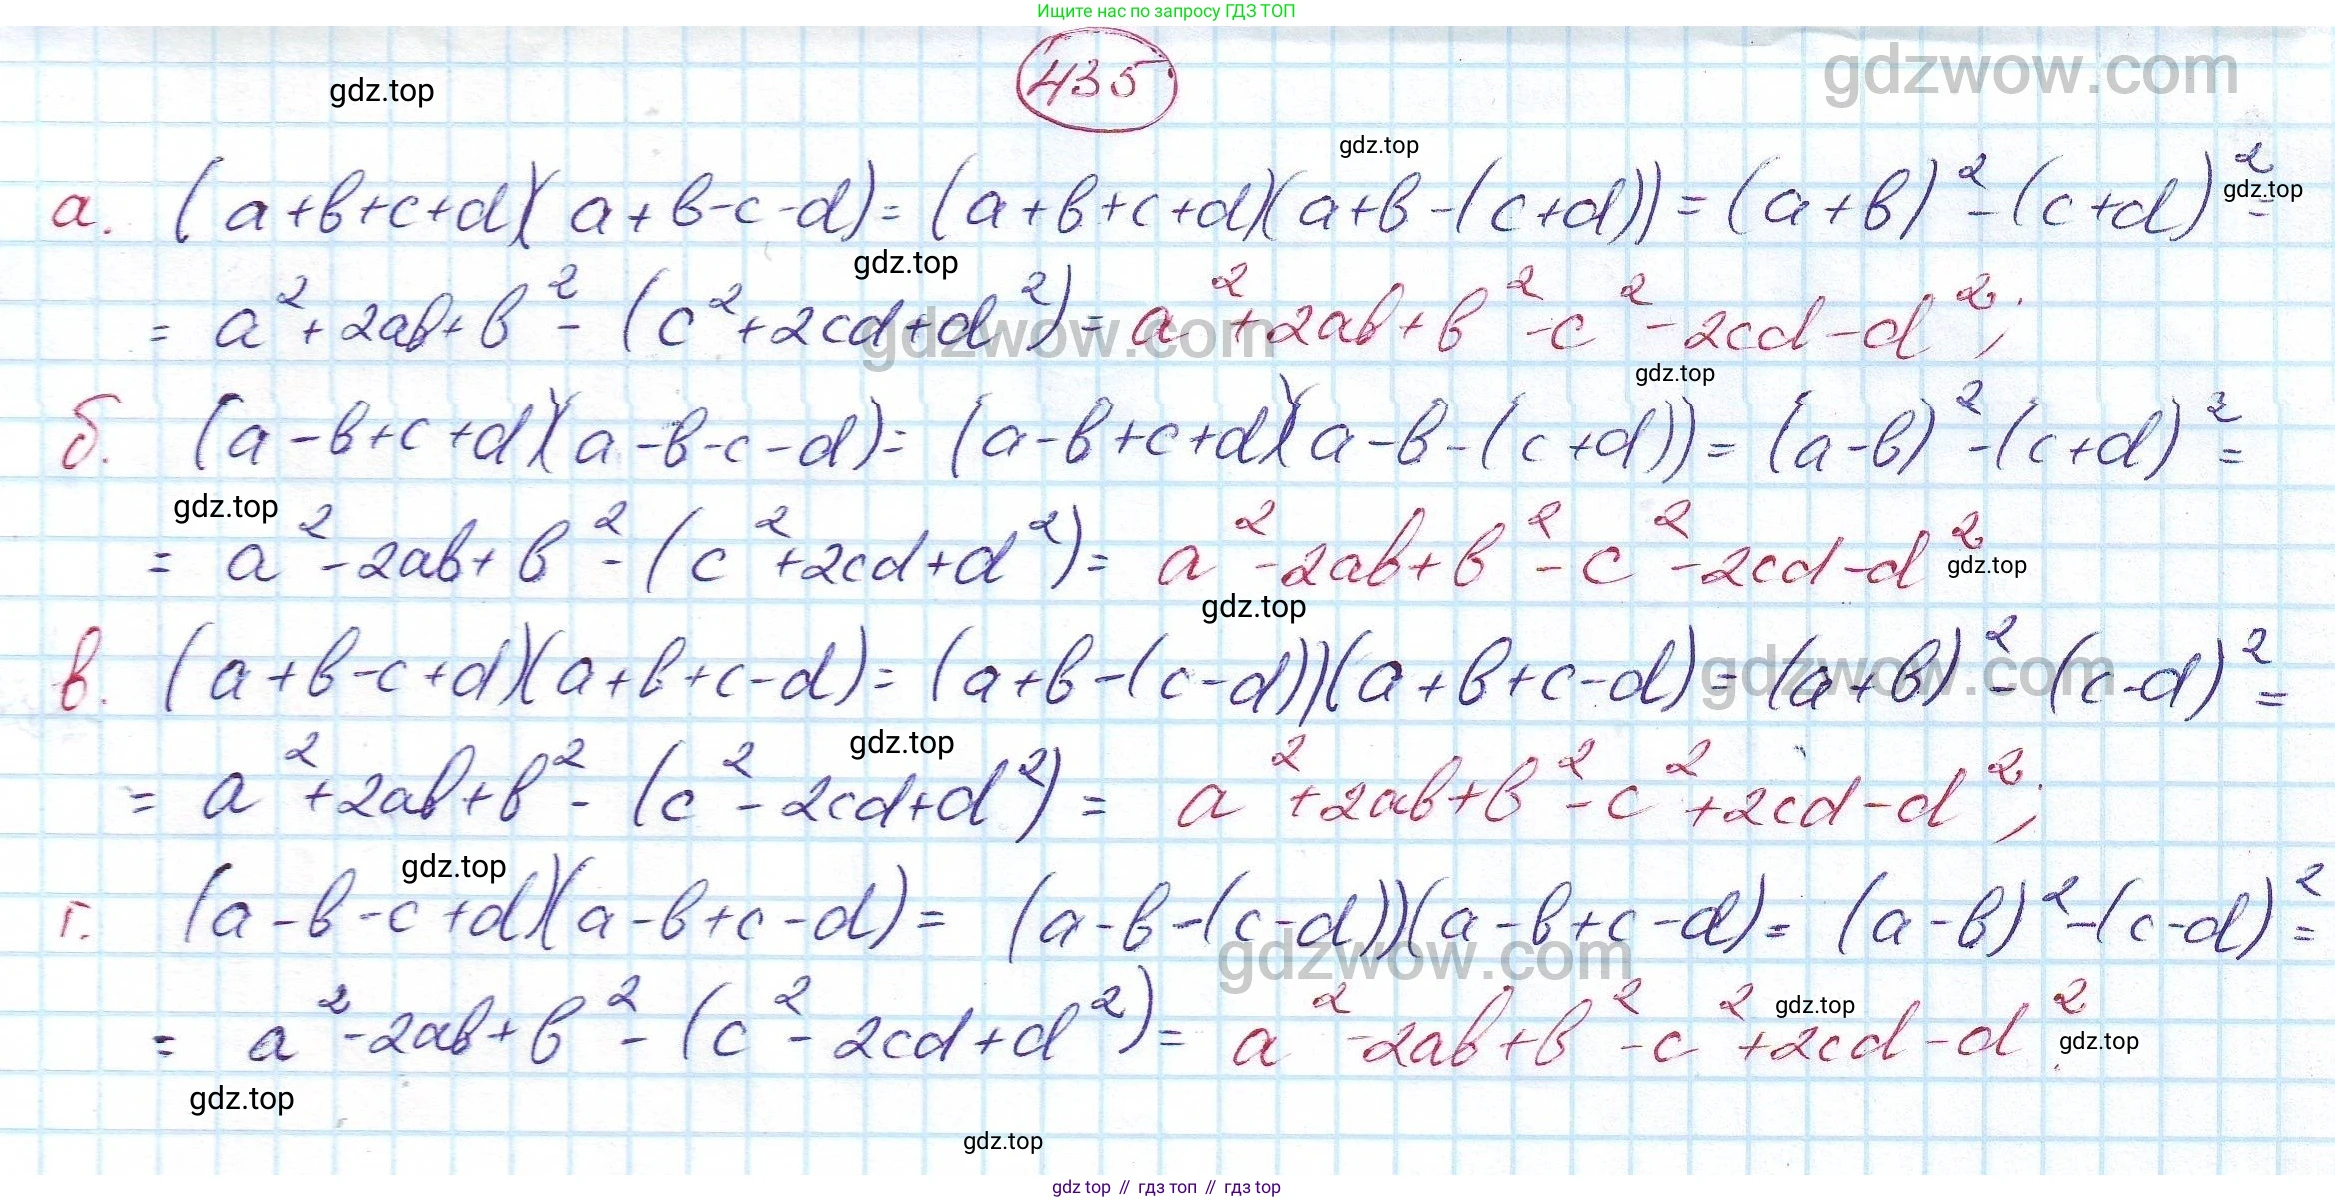 Ищите нас по запросу ГДЗ ТОП
435
gdz.top
gdzwow.com
gdz.top
а. (a+b+c+d)(a+b-c-d)=(a+b+c+d)(a+b-(c+d))=(a+b)²-(c+d)²=
gdz.top
gdz.top
= a²+2ab+b²-(c²+2cd+d²)= a²+2ab+b²-c²-2cd-d²;
gdzwow.com
gdz.top
б. (a-b+c+d)(a-b-c-d)=(a-b+c+d)(a-b-(c+d))=(a-b)²-(c+d)²=
gdz.top
= a²-2ab+b²-(c²+2cd+d²)= a²-2ab+b²-c²-2cd-d²
gdz.top
gdz.top
в. (a+b-c+d)(a+b+c-d)=(a+b-(c-d))(a+b+c-d)=(a+b)²-(c-d)²=
gdzwow.com
gdz.top
= a²+2ab+b²-(c²-2cd+d²)= a²+2ab+b²-c²+2cd-d²;
gdz.top
г. (a-b-c+d)(a-b+c-d)= (a-b-(c-d))(a-b+c-d)=(a-b)²-(c-d)²=
gdzwow.com
gdz.top
= a²-2ab+b²-(c²-2cd+d²)= a²-2ab+b²-c²+2cd-d².
gdz.top
gdz.top
gdz.top
gdz top // гдз топ // gdz top